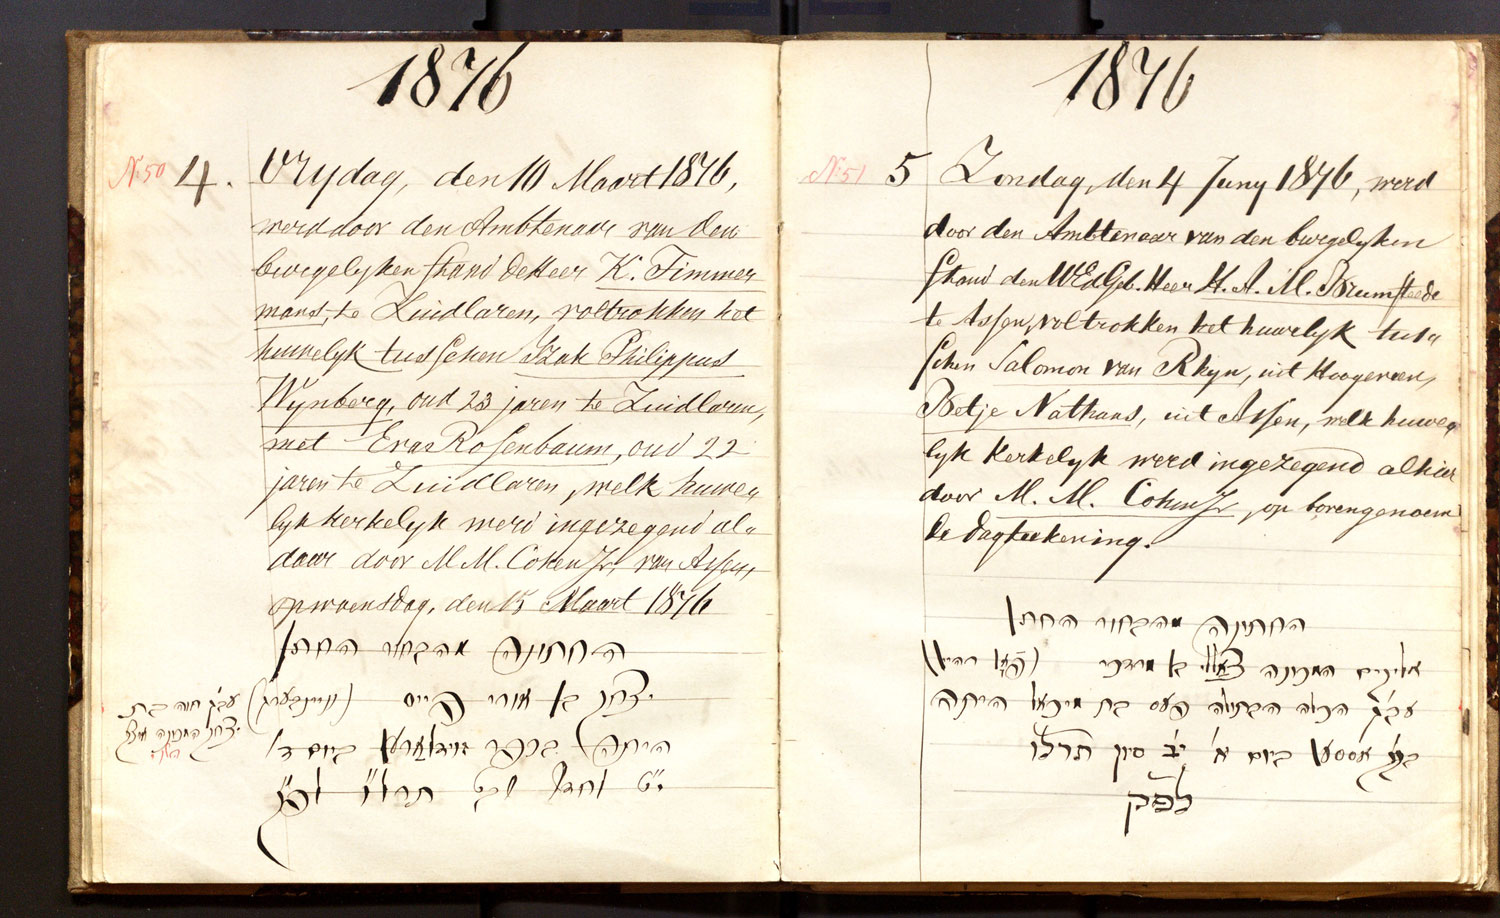 1876
No 50 4. Vrydag, den 10 Maart 1876,
werd door den Ambtenaar van den
burgelyken stand de Heer K. Timmer
mans, te Zuidlaren, voltrokken het
huwelyk tusschen Izak Philippus
Wynberg, oud 23 jaren te Zuidlaren,
met Eva Rosenbaum, oud 22
jaren te Zuidlaren, welk huwe„
lyk kerkelyk werd ingezegend al„
daar door M. M. Cohen Jr, van Assen,
op woensdag, den 15 Maart 1876
החתונה מהבחור החתן
יצחק בן אורי
עב״ג חוה בת
יצחק המכונה
ביום ד׳
י״ט תרל״ו לפ״ק
1876
No 51 5 Zondag, den 4 Juny 1876, werd
door den Ambtenaar van den burgelyken
stand den WEdGeb. Heer H. A. M. Brumsteede
te Assen, voltrokken het huwelyk tus„
schen Salomon van Rhyn, uit Hoogeveen,
Betje Nathans, uit Assen, welk huwe„
lyk kerkelyk werd ingezegend alhier
door M. M. Cohen Jr, op bovengenoem
de dagteekening.
החתונה מהבחור החתן
המכונה
עב״ג הכלה הבתולה בת מיכאל היתה
ביום א׳ י״ב סיון תרלו
לפק